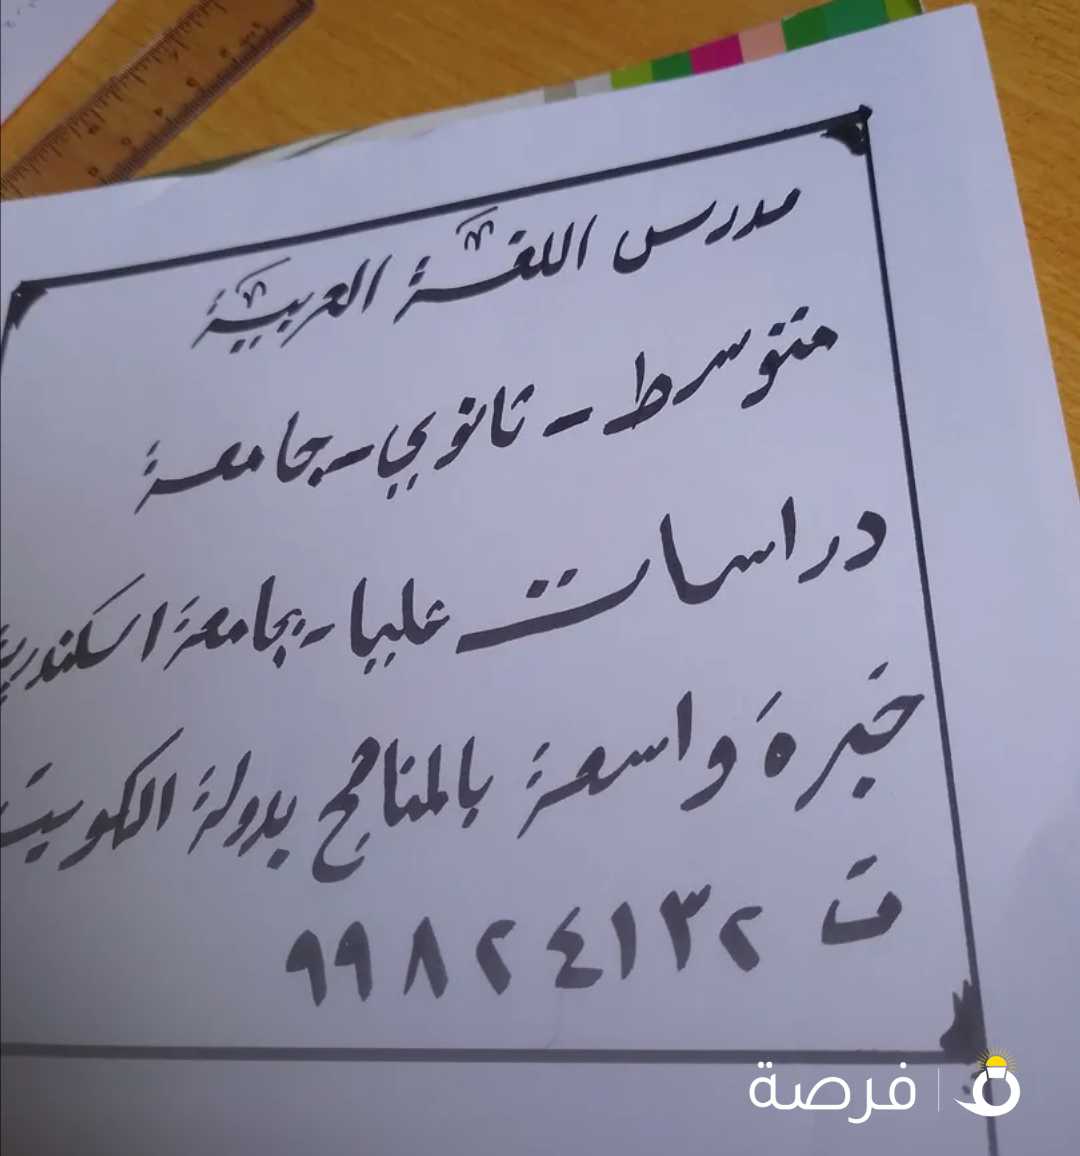 مدرس اللغة العربية
متوسط - ثانوي - جامعة
دراسات عليا - جامعة اسكندرية
خبرة واسعة بالمناهج بدولة الكويت
ت ٩٩٨٢٤١٣٢
فرصة